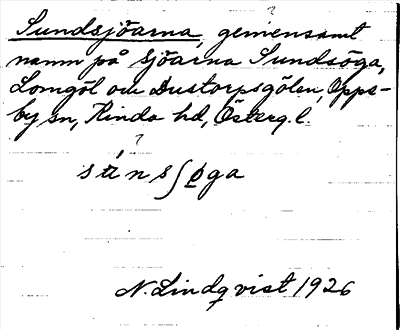 Sundsjöarna, gemensamt
namn på sjöarna Sundsöga,
Lomgöl och Dustorpsgölen, Opps-
by sn, Kinda hd, Österg. l.
?
N. Lindqvist 1926